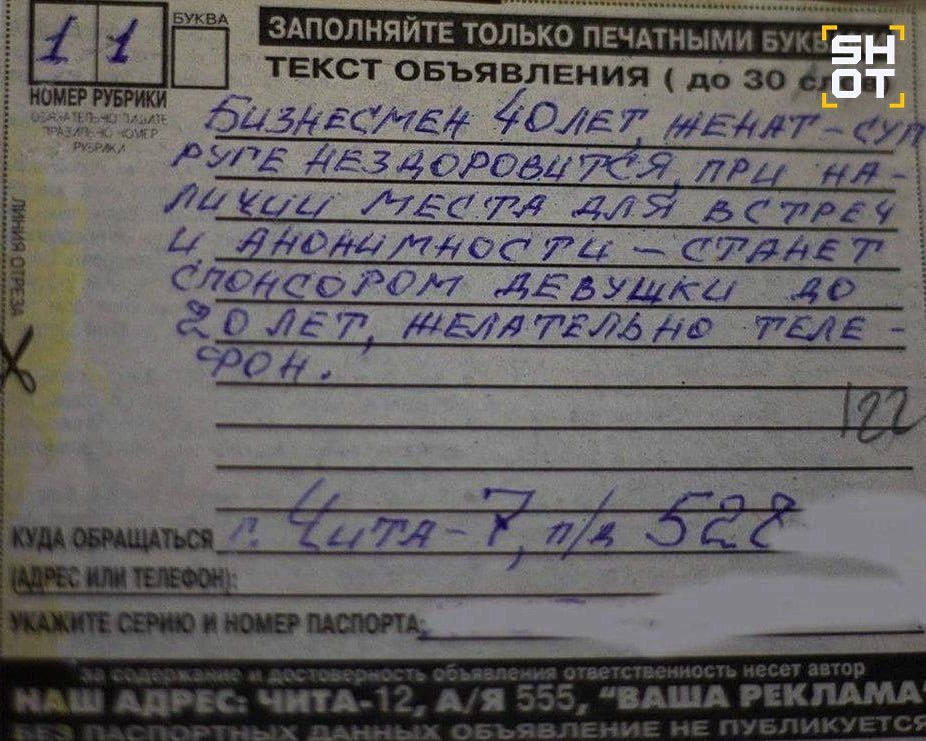 11
БУКВА
ЗАПОЛНЯЙТЕ ТОЛЬКО ПЕЧАТНЫМИ
SHOT
ТЕКСТ ОБЪЯВЛЕНИЯ ( до 30
НОМЕР РУБРИКИ
ОБЯЗАТЕЛЬНО ПИШИТЕ
ПРАВИЛЬНО НОМЕР
РУБРИКИ
БИЗНЕСМЕН 40 ЛЕТ, ЖЕНАТ – СУП
РУГЕ НЕЗДОРОВИТСЯ, ПРИ НА-
ЛИЧИИ МЕСТА ДЛЯ ВСТРЕЧ
И АНОНИМНОСТИ – СТАНЕТ
СПОНСОРОМ ДЕВУШКИ ДО
20 ЛЕТ, ЖЕЛАТЕЛЬНО ТЕЛЕ-
ФОН.
ЛИНИЯ ОТРЕЗА
122
КУДА ОБРАЩАТЬСЯ г. Чита-7, п/д 528
(АДРЕС ИЛИ ТЕЛЕФОН):
УКАЖИТЕ СЕРИЮ И НОМЕР ПАСПОРТА:
За содержание и достоверность объявления ответственность несет автор
НАШ АДРЕС: ЧИТА-12, А/Я 555, "ВАША РЕКЛАМА"
БЕЗ ПАСПОРТНЫХ ДАННЫХ ОБЪЯВЛЕНИЕ НЕ ПУБЛИКУЕТСЯ